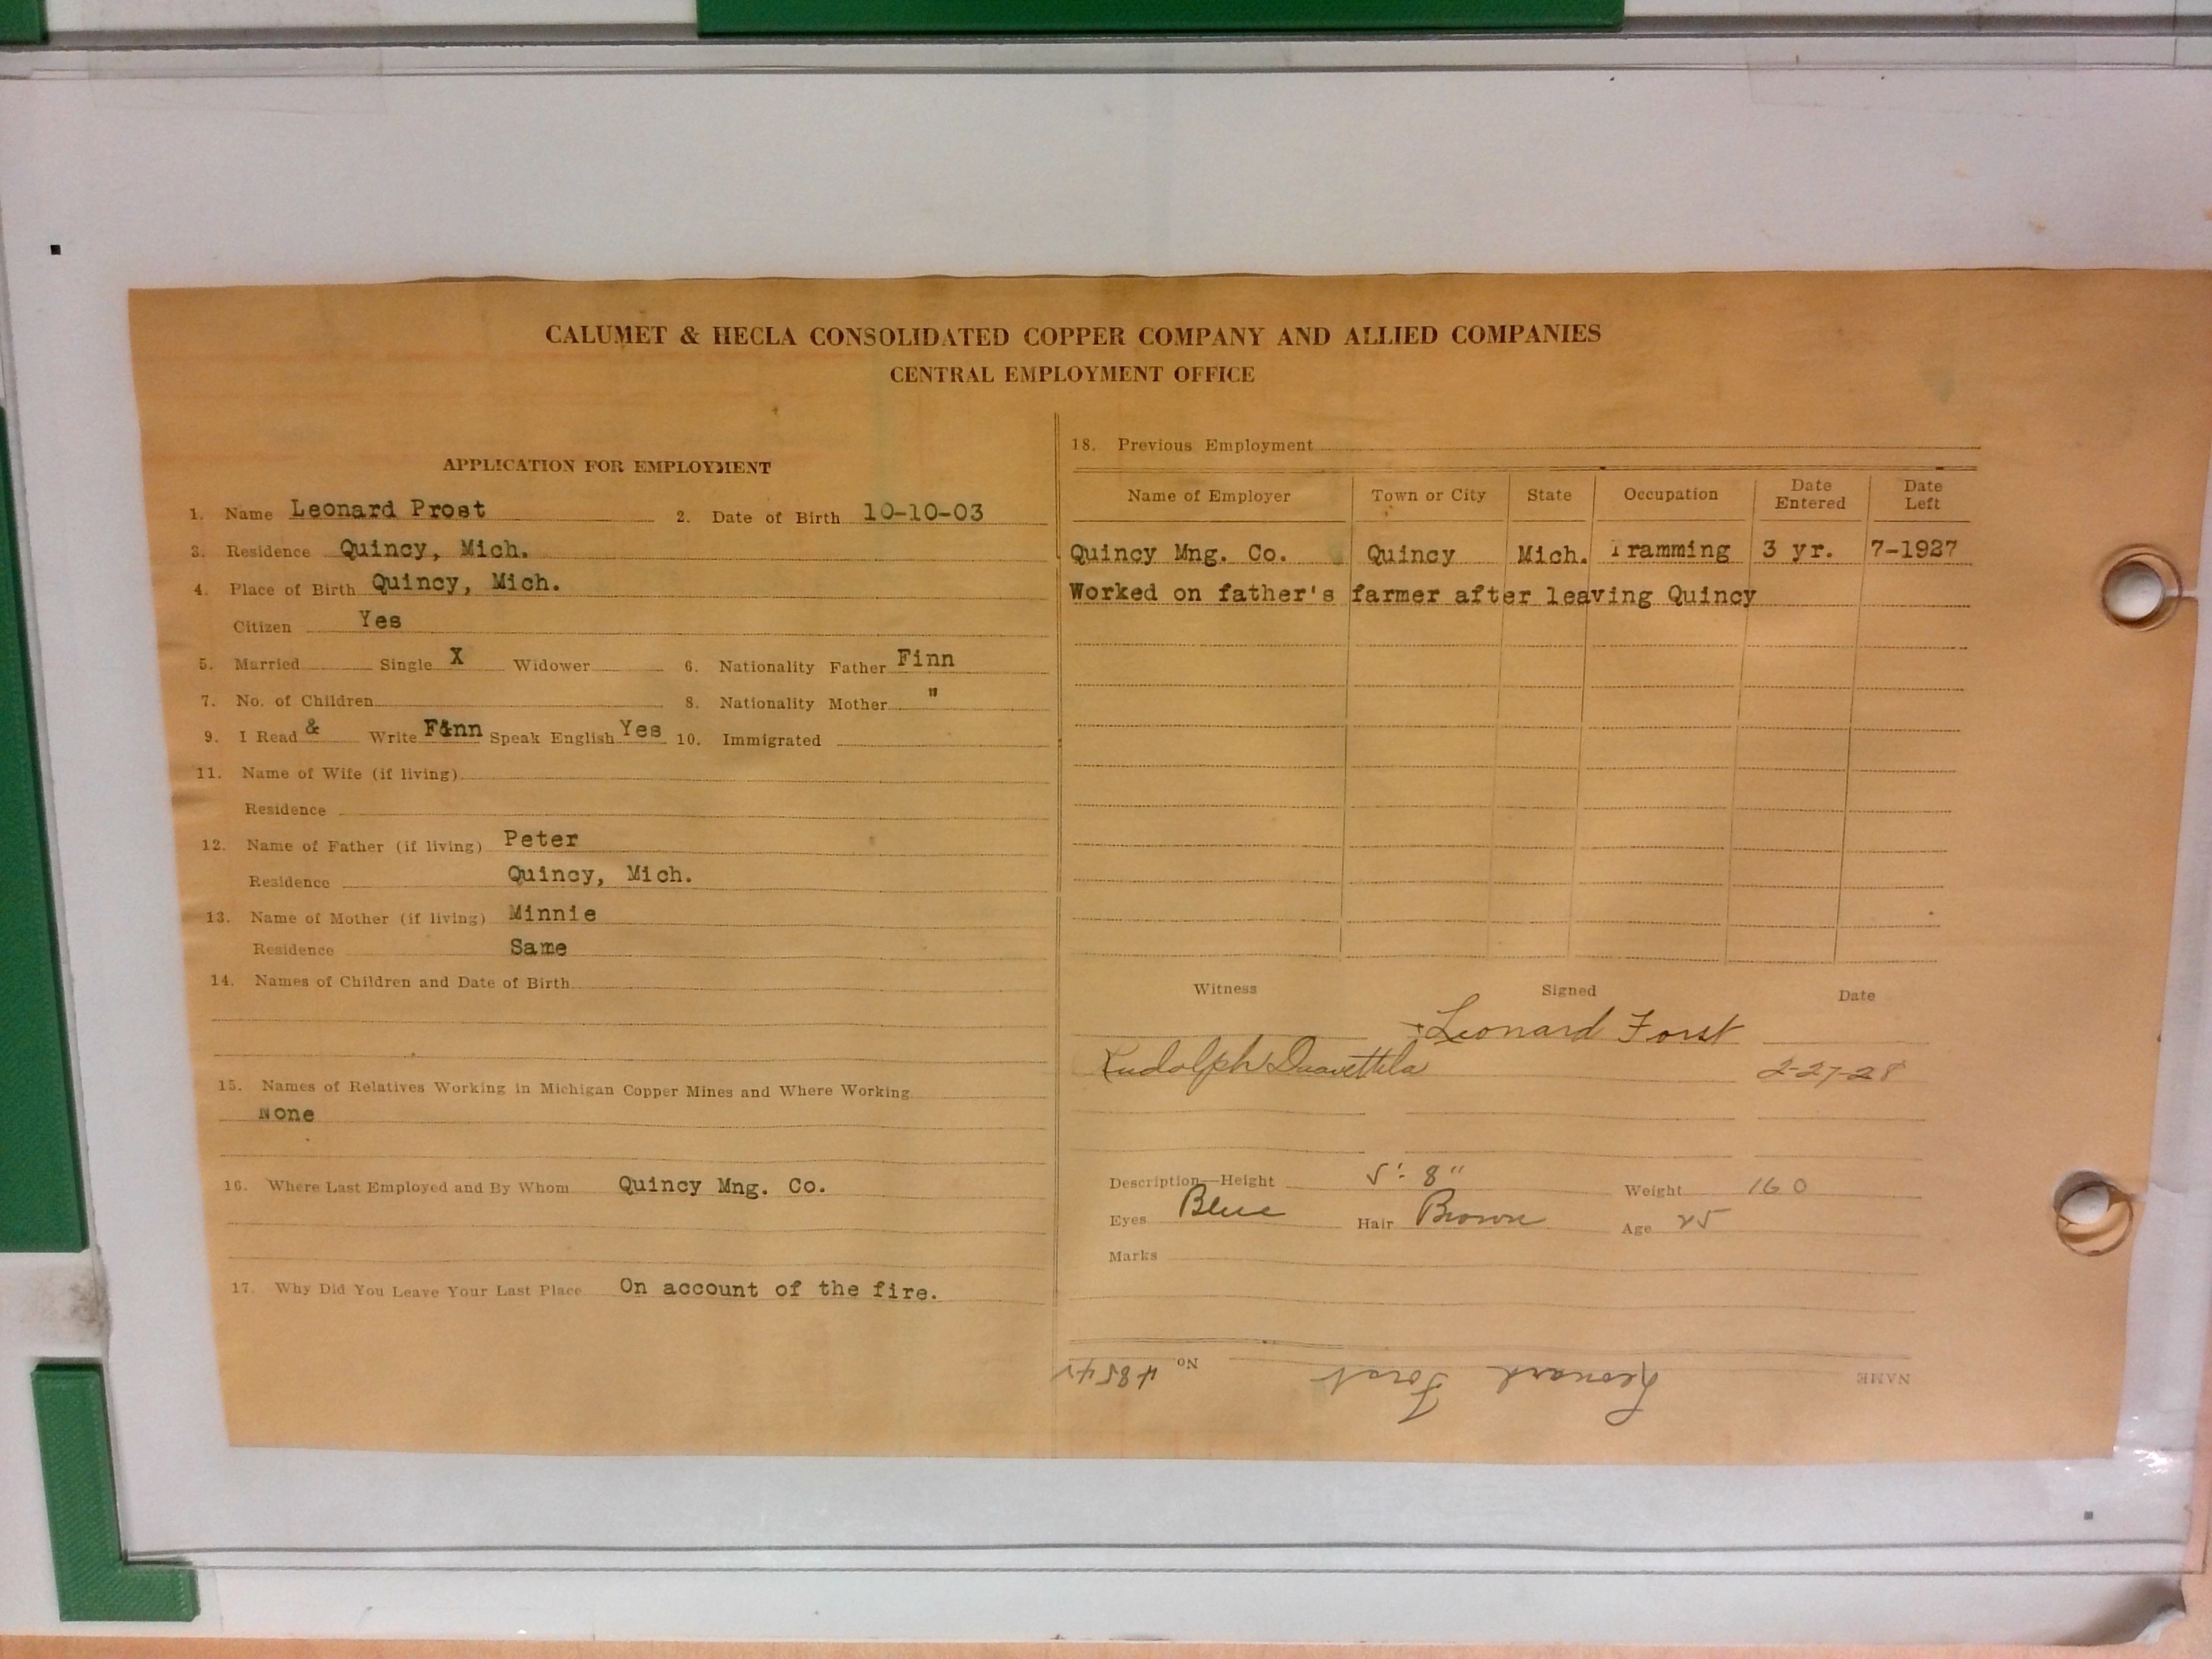 CALUMET & HECLA CONSOLIDATED COPPER COMPANY AND ALLIED COMPANIES
CENTRAL EMPLOYMENT OFFICE
APPLICATION FOR EMPLOYMENT
1. Name Leonard Prost 2. Date of Birth 10-10-03
3. Residence Quincy, Mich.
4. Place of Birth Quincy, Mich.
Citizen Yes
5. Married Single X Widower 6. Nationality Father Finn
7. No. of Children 8. Nationality Mother "
9. I Read & Write Finn Speak English Yes 10. Immigrated
11. Name of Wife (if living)
Residence
12. Name of Father (if living) Peter
Residence Quincy, Mich.
13. Name of Mother (if living) Minnie
Residence Same
14. Names of Children and Date of Birth
15. Names of Relatives Working in Michigan Copper Mines and Where Working
None
16. Where Last Employed and By Whom Quincy Mng. Co.
17. Why Did You Leave Your Last Place On account of the fire.
18. Previous Employment
Name of Employer Town or City State Occupation Date Entered Date Left
Quincy Mng. Co. Quincy Mich. Tramming 3 yr. 7-1927
Worked on father's farmer after leaving Quincy
Witness Signed Date
Leonard Forst
Rudolph 2-27-28
Description—Height 5': 8" Weight 160
Eyes Blue Hair Brown Age 25
Marks
NAME Leonard Forst No.